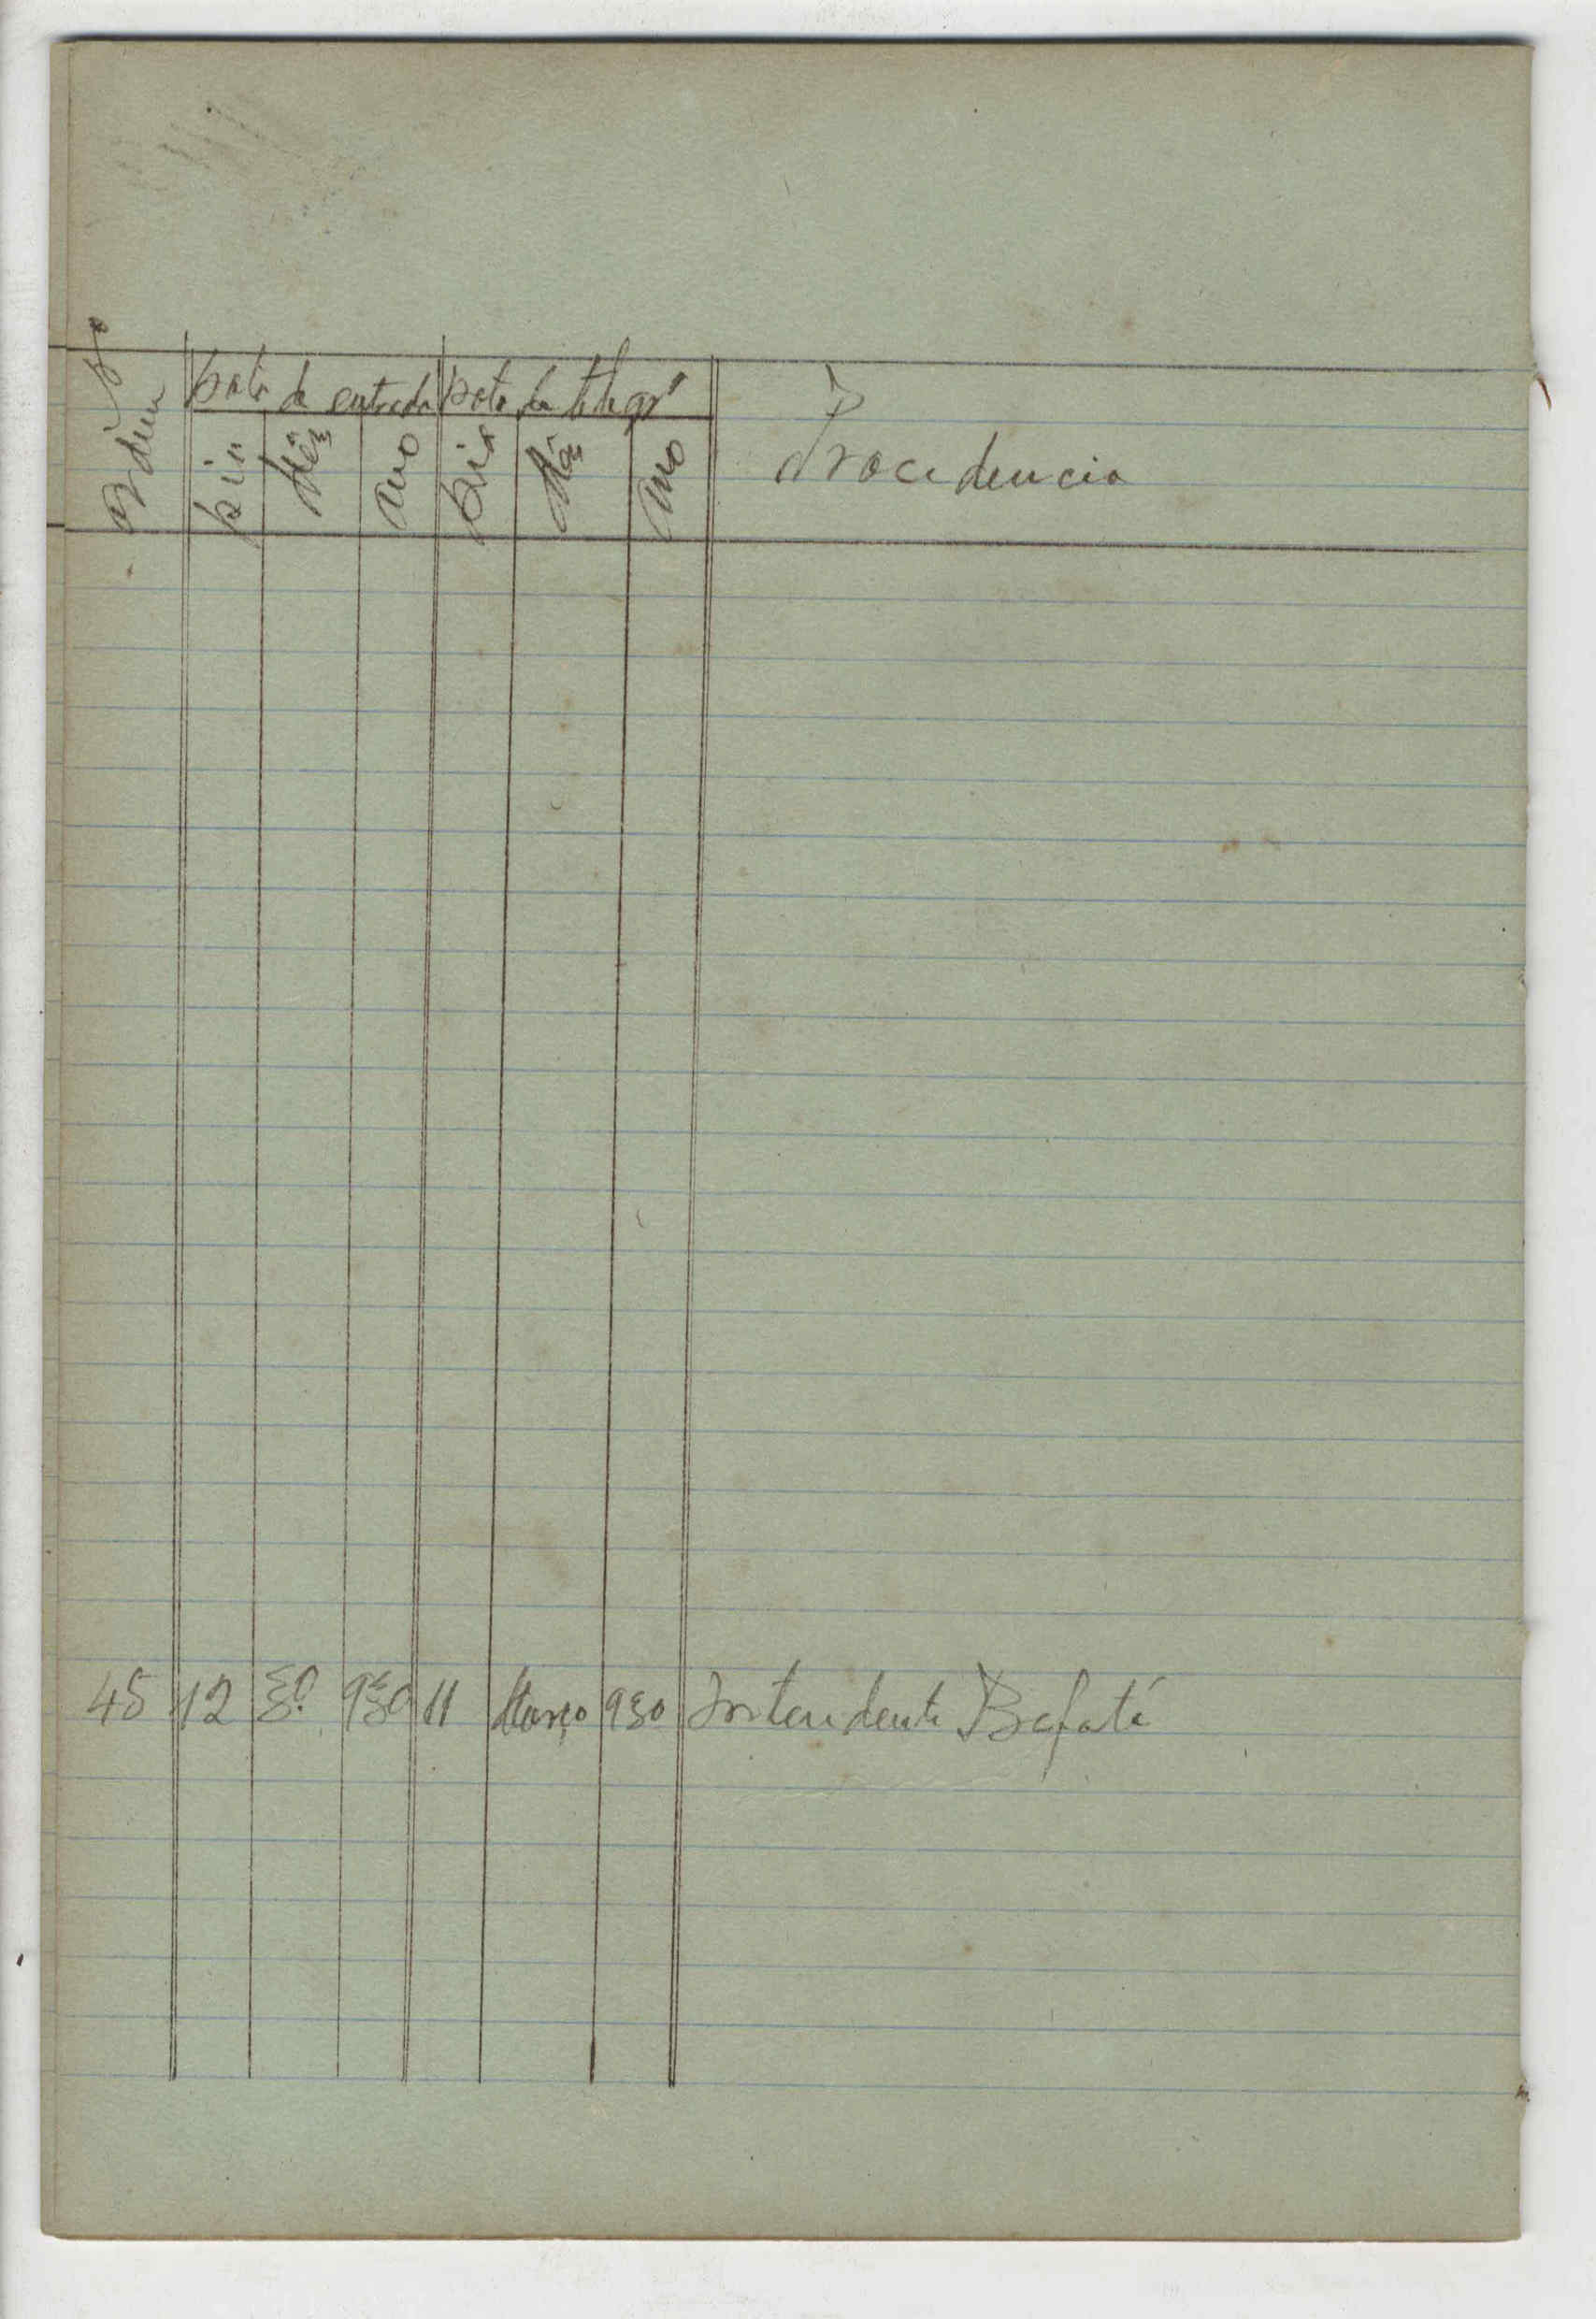 Nº Ordem
Data da entrada Data da telegrª
Dia Mês Ano Dia Mês Ano Procidencia
45 12 3º 930 11 Março 930 Intendente Bafatá